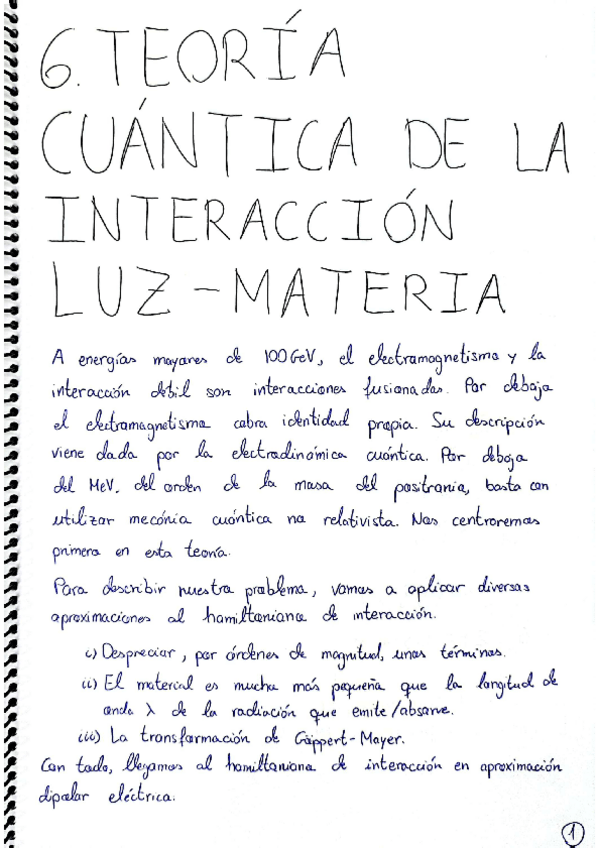 6. TEORÍA
CUÁNTICA DE LA
INTERACCIÓN
LUZ-MATERIA
A energías mayores de 100 GeV, el electromagnetismo y la
interacción débil son interacciones fusionadas. Por debajo
el electromagnetismo cobra identidad propia. Su descripción
viene dada por la electrodinámica cuántica. Por debajo
del MeV. del orden de la masa del positronio, basta con
utilizar mecánia cuántica no relativista. Nos centraremos
primero en esta teoría.
Para describir nuestro problema, vamos a aplicar diversas
aproximaciones al hamiltoniano de interacción.
i) Despreciar, por órdenes de magnitud, unos términos.
ii) El material es mucho más pequeño que la longitud de
onda λ de la radiación que emite/absorve.
iii) La transformación de Göppert-Mayer.
Con todo, llegamos al hamiltoniano de interacción en aproximación
dipolar eléctrica.
1